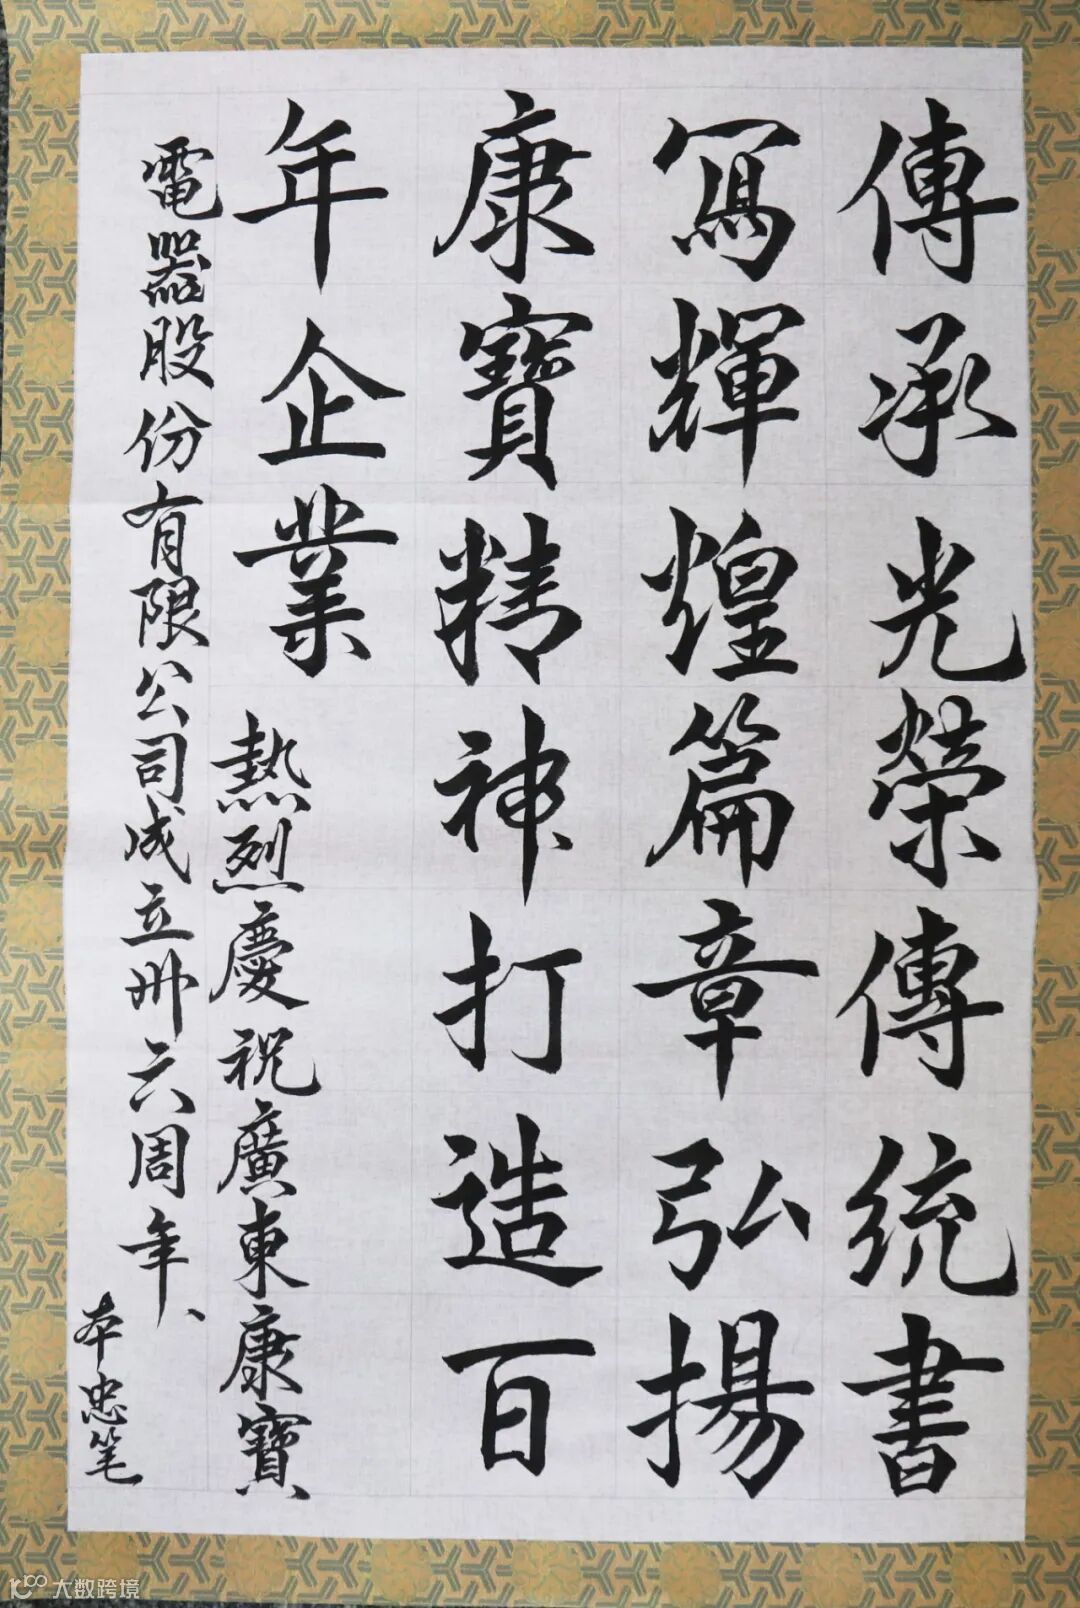 傳承光榮傳統書
寫輝煌篇章弘揚
康寶精神打造百
年企業
熱烈慶祝廣東康寶
電器股份有限公司成立卅六周年、
本忠笔
大数跨境